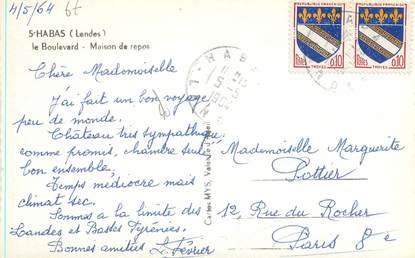 4/5/64 bt
5-HABAS (Landes)
le Boulevard - Maison de repos
Chère Mademoiselle
J'ai fait un bon voyage,
peu de monde.
Château très sympathique
comme promis, chambre seule
bon ensemble,
Temps médiocre mais
climat sec.
Sommes a la limite des
Landes et Basses Pyrénées.
Bonnes amitiés L. Février
Mademoiselle Marguerite
Pottier
12, Rue du Rocher
Paris 8e
HABAS
REPUBLIQUE FRANCAISE
Postes 0,10
TROYES
REPUBLIQUE FRANCAISE
Postes 0,10
TROYES
Carles MYS,